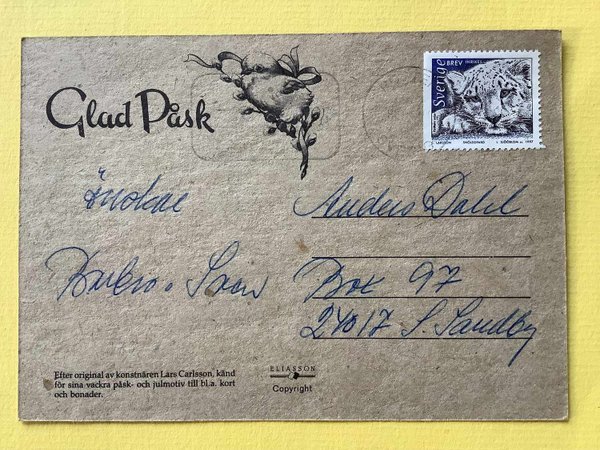 Glad Påsk
Sverige BREV INRIKES
SNÖLEOPARD
1997
Önskar
Barbro o Sven
Anders Dahl
Box 97
24017 S. Sandby
Efter original av konstnären Lars Carlsson, känd
för sina vackra påsk- och julmotiv till bl.a. kort
och bonader.
ELIASSON
Copyright